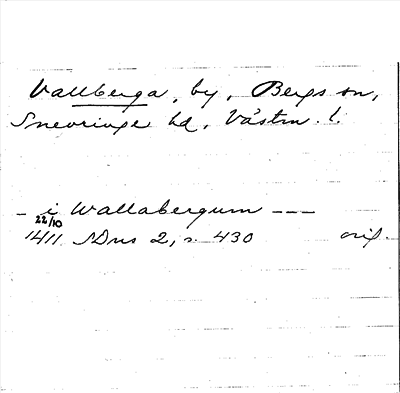 Vallberga, by, Bergs sn,
Snevringe hd, Västm. l.
- i Wallabergum ---
22/10
1411 SDns 2, s. 430 orig.